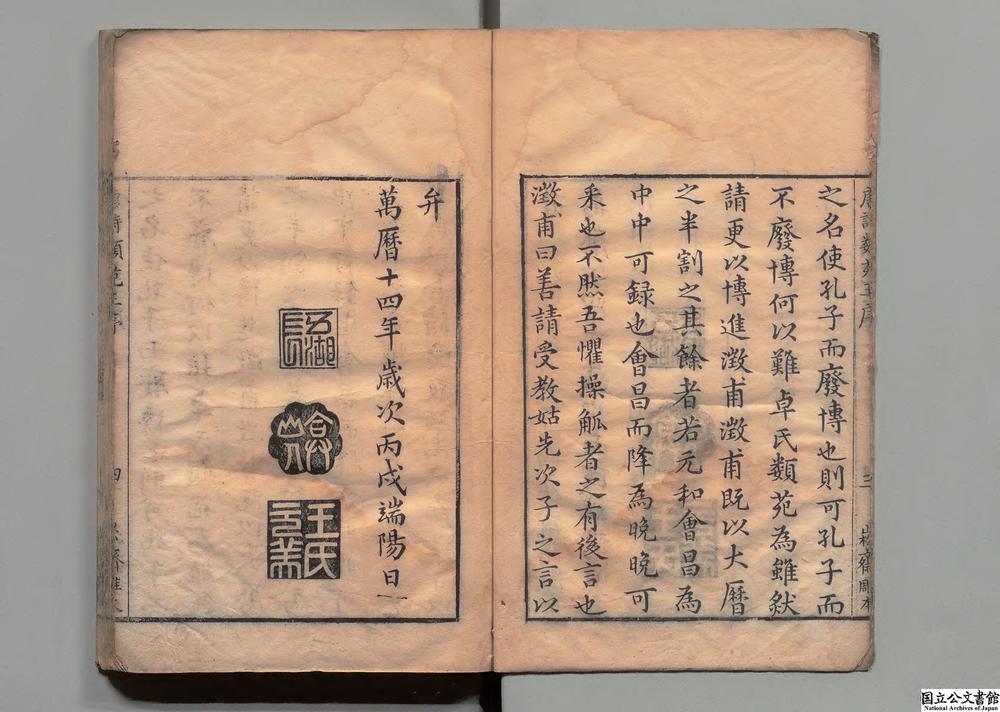 之名使孔子而廢博也則可孔子而
不廢博何以難卓氏類苑為雖然
請更以博進澂甫澂甫既以大曆
之半割之其餘者若元和會昌為
中中可録也會昌而降為晚晚可
采也不然吾懼操觚者之有後言也
澂甫曰善請受教姑先次子之言以
弁
萬曆十四年歲次丙戌端陽日
五湖長
王氏
三
崧齋雕本
四
国立公文書館
National Archives of Japan